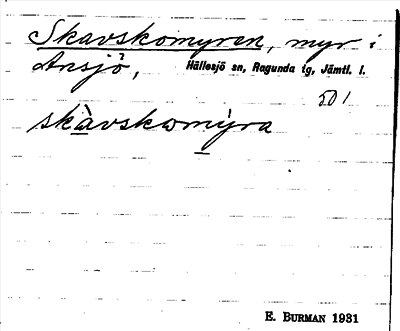 Skavskomyren, myr i
Ansjö, Hällesjö sn, Ragunda tg, Jämtl. l.
501
skàvskomỳra
E. BURMAN 1931